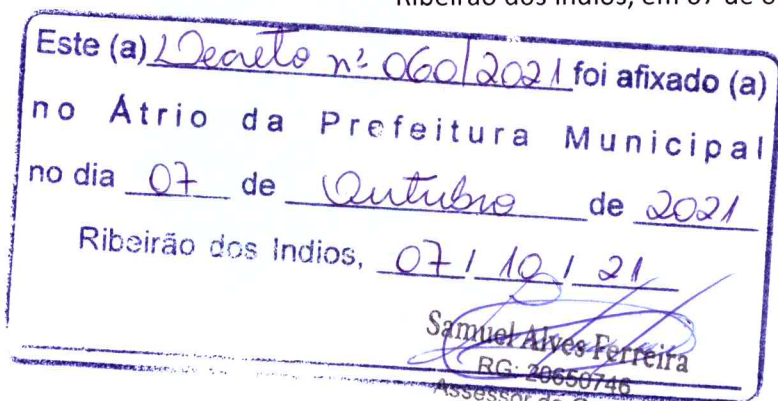 Ribeirão dos Índios, em 07 de
Este (a) Decreto nº 060/2021 foi afixado (a)
no Átrio da Prefeitura Municipal
no dia 07 de Outubro de 2021
Ribeirão dos Indios, 07 / 10 / 21
Samuel Alves Ferreira
RG: 20650746
Assessor de